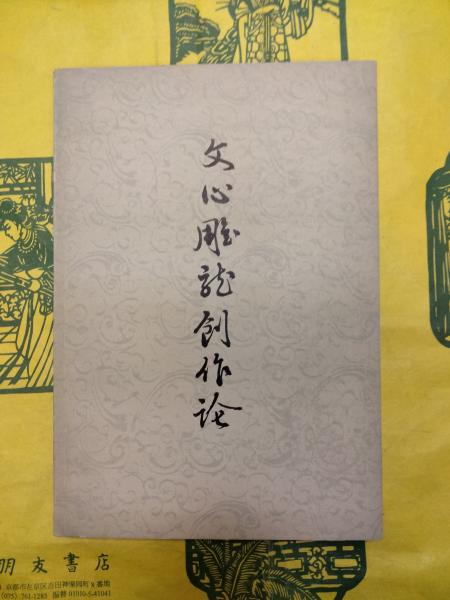 文心雕龙创作论
朋友書店
京都市左京区吉田神楽岡町8番地
(075) 761-1285 振替 01010-5-41041